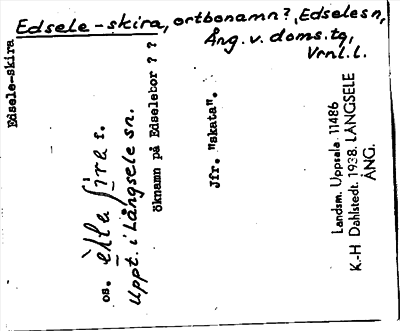 Edsele-skira, ortbonamn? Edselesn,
Ång. v. doms. tg,
Vrnl. l.
Edsele-skira
os.
f.
Uppt. i Långsele sn.
öknamn på Edselebor ? ?
Jfr. "skata".
Landsm. Uppsala 11486
K.-H Dahlstedt. 1938. LÅNGSELE
ÅNG.